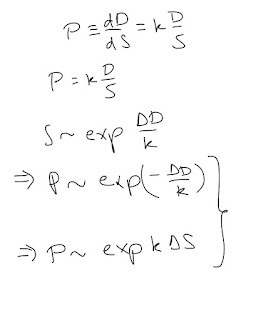 P ≡ dD/dS = k D/S
P = k D/S
S ~ exp ΔD/k
⇒ P ~ exp(-ΔD/k)
⇒ P ~ exp k ΔS